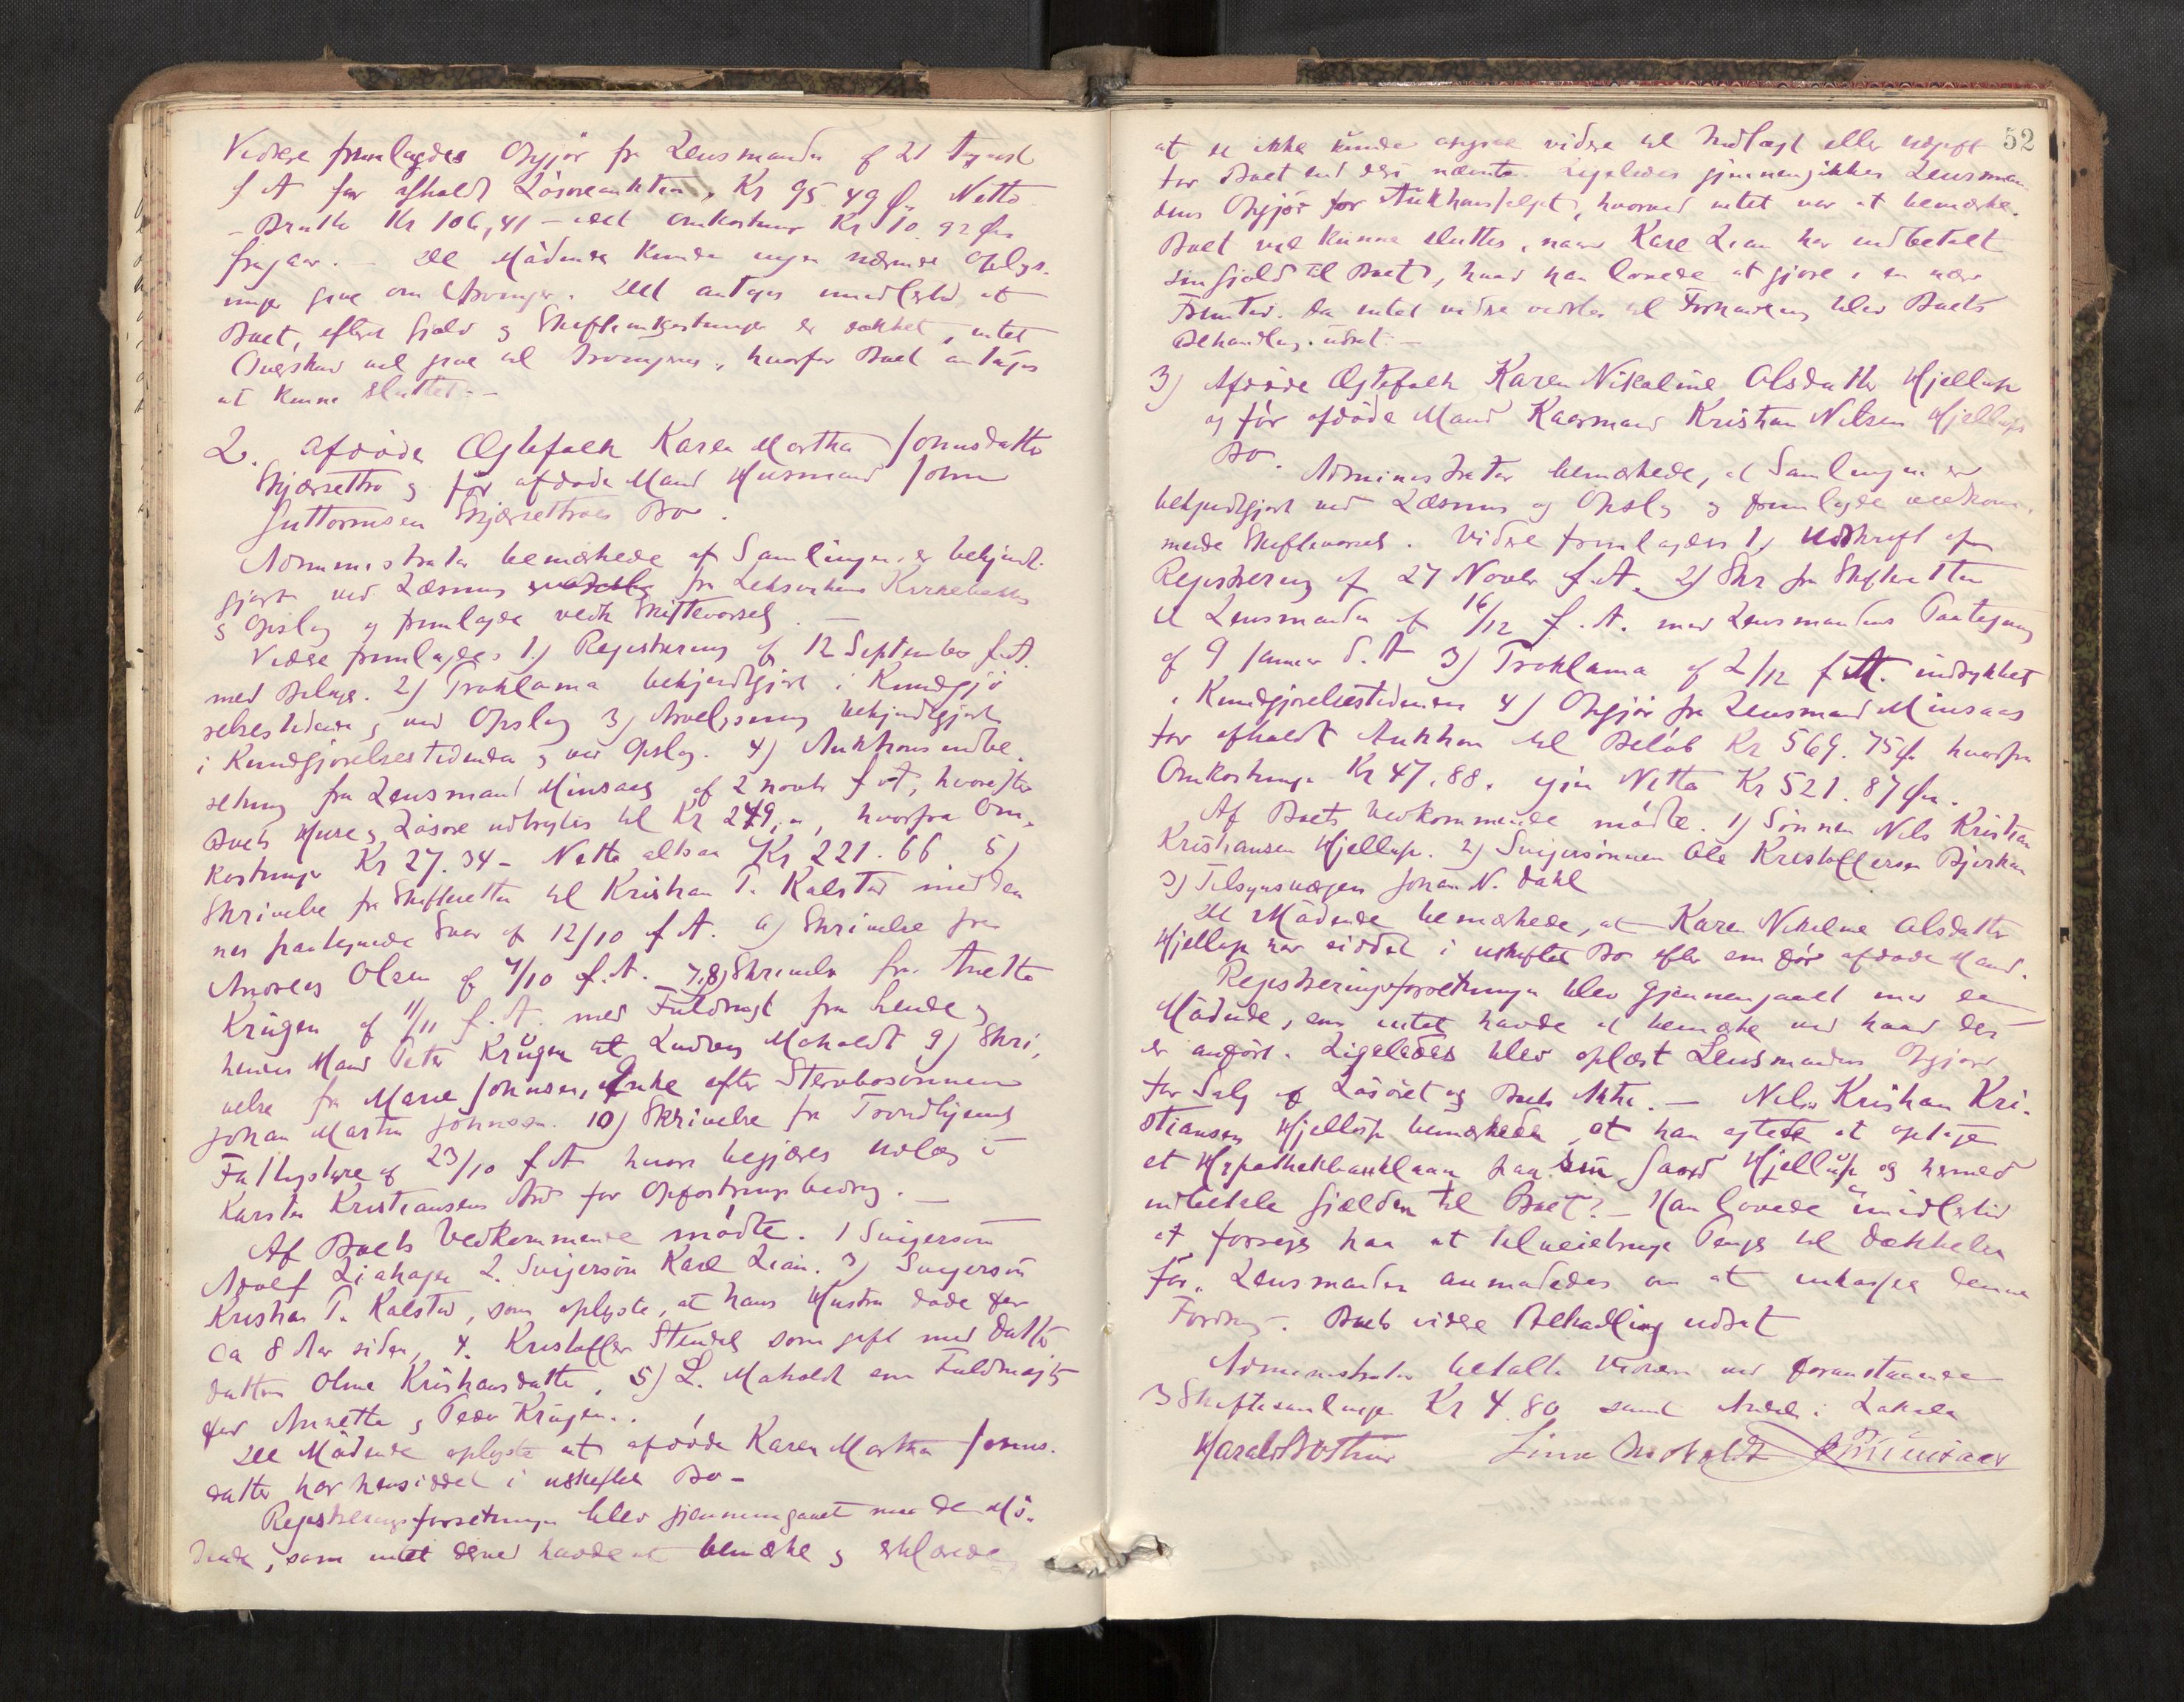 Videre fremlagdes Opgjör fr Lensmanden af 21 August
f A for afholdt Lösöreauktion, Kr 95.49 Ø. Netto
- Brutto Kr 106,41 - idet Omkostninger Kr 10.92 Øre
fragaar. - De Mödende kunde ingen nærmere Oplys-
ninger give om Arvinger. Det antages imidlertid at
Boet, efterat Gjæld og Skifteomkostninger er dækket, intet
Overskud vil give til Arvingerne, hvorfor Boet antages
at kunne sluttes. -
2. Afdöde Ægtefolk Karen Martha Jonnsdatter
Skjærsethro og för afdöde Mand Husmand John
Guttormsen Skjærsethroes Bo.
Administrator bemærkede at Samlingen er bekjendt-
gjort ved Læsning fra Leksvikens Kirkebakke
og Opslag og fremlagde vedk Skiftevarsel. -
Videre fremlagdes 1.) Registrering af 12 September f. A.
med Bilage. 2) Proklama bekjendtgjort i Kundgjö-
relsestidende og ved Opslag 3) Arvelysning bekjendtgjort
i Kundgjörelsestidenden og ved Opslag. 4) Auktionsindbe-
retning fra Lensmand Minsaas af 2 Novbr f A, hvorefter
Boets Huse og Lösöre udbragtes til Kr 249,00, hvorfra Om-
kostninger Kr 27.34 - Netto altsaa Kr 221.66 5)
Skrivelse fr Skifteretten til Kristian T. Kalstad med den-
nes paategnede Svar af 12/10 f A. 6) Skrivelse fra
Andreas Olsen af 7/10 f. A. 7,8) Skrivelse fra Anette
Krügen af 11/11 f. A. med Fuldmagt fra hende og
hendes Mand Peter Krügen til Ludvig Moholdt 9) Skri-
velse fr Marie Johnsen, Enke efter Stervbosönnen
Johan Martin Johnsen. 10) Skrivelse fr Trondhjems
Fattigstyre af 23/10 f A hvori begjæres Udlæg i
Karsten Kristiansens Arv for Opfostringsbidrag. -
Af Boets Vedkommende mödte. 1 Svigersön
Adolf Liahagen 2. Svigersön Karl Lian. 3) Svigersön
Kristian T. Kalstad, som oplyste, at hans Hustru döde for
ca 8 Aar siden, 4. Kristoffer Stendal som gift med Datter-
datteren Oline Kristiansdatter, 5) L. Moholdt som Fuldmægtig
for Annette og Peder Krügen.
De Mödende oplyste at afdöde Karen Martha Jonns-
datter har hensiddet i uskiftet Bo -
Registreringsforretningen blev gjennemgaaet med de Mö-
dende, som intet derved havde at bemærke og erklærede,
52
at de ikke kunde opgive videre til Indtægt eller Udgift
for Boet end deri nævnte. Ligeledes gjennemgikkes Lensman-
dens Opgjör for Auktionssalget, hvorved intet var at bemærke.
Boet vil kunne sluttes, naar Karl Lian har indbetalt
sin Gjæld til Boet, hvad han lovede at gjöre i en nær
Fremtid. Da intet videre vedkom til Forhandling blev Boets
Behandling udsat. -
3) Afdöde Ægtefolk Karen Nikoline Olsdatter Hjellup
og för afdöde Mand Kaarmand Kristian Nilsen Hjellups
Bo.
Administrator bemærkede, at Samlingen er
bekjendtgjort ved Læsning og Opslag og fremlagde vedkom-
mende Skiftevarsel. Videre fremlagdes 1) Udskrift af
Registrering af 27 Novbr f. A. 2) Skr fra Skifteretten
til Lensmanden af 16/12 f. A. med Lensmandens Paategning
af 9 Januar d. A 3) Proklama af 2/12 f A. indrykket
i Kundgjörelsestidenden 4) Opgjör fra Lensmand Minsaas
for afholdt Auktion til Belöb Kr 569.75 Ø. hvorfra
Omkostninger Kr 47.88. igjen Netto Kr 521.87 Øre.
Af Boets Vedkommende mödte. 1) Sönnen Nils Kristian
Kristiansen Hjellup. 2) Svigersönnen Ole Kristoffersen Bjerkan
3) Tilsynsværgen Johan N. Dahl
De Mödende bemærkede, at Karen Nikoline Olsdatter
Hjellup har siddet i uskiftet Bo efter sin för afdöde Mand.
Registreringsforretningen blev gjennemgaaet med de
Mödende, som intet havde at bemærke ved hvad der
er anfört. Ligeledes blev oplæst Lensmandens Opgjör
for Salg af Lösöret og Boets Aktie. - Nils Kristian Kri-
stiansen Hjellup bemærkede, at han agtede at optage
et Hypothekbanklaan paa sin Gaard Hjellup og hermed
indbetale Gjælden til Boet? - Han lovede imidlertid
at forsöge paa at tilveiebringe Penge til Dækkelse
för. Lensmanden anmodedes om at inkassere denne
Fordring. Boets videre Behandling udsat
Administrator betalte Vidnerne ved foranstaaende
3 Skiftesamlinger Kr 4.80 samt Andel i Lokale
Harald Bothner Simon Moholdt Minsaas